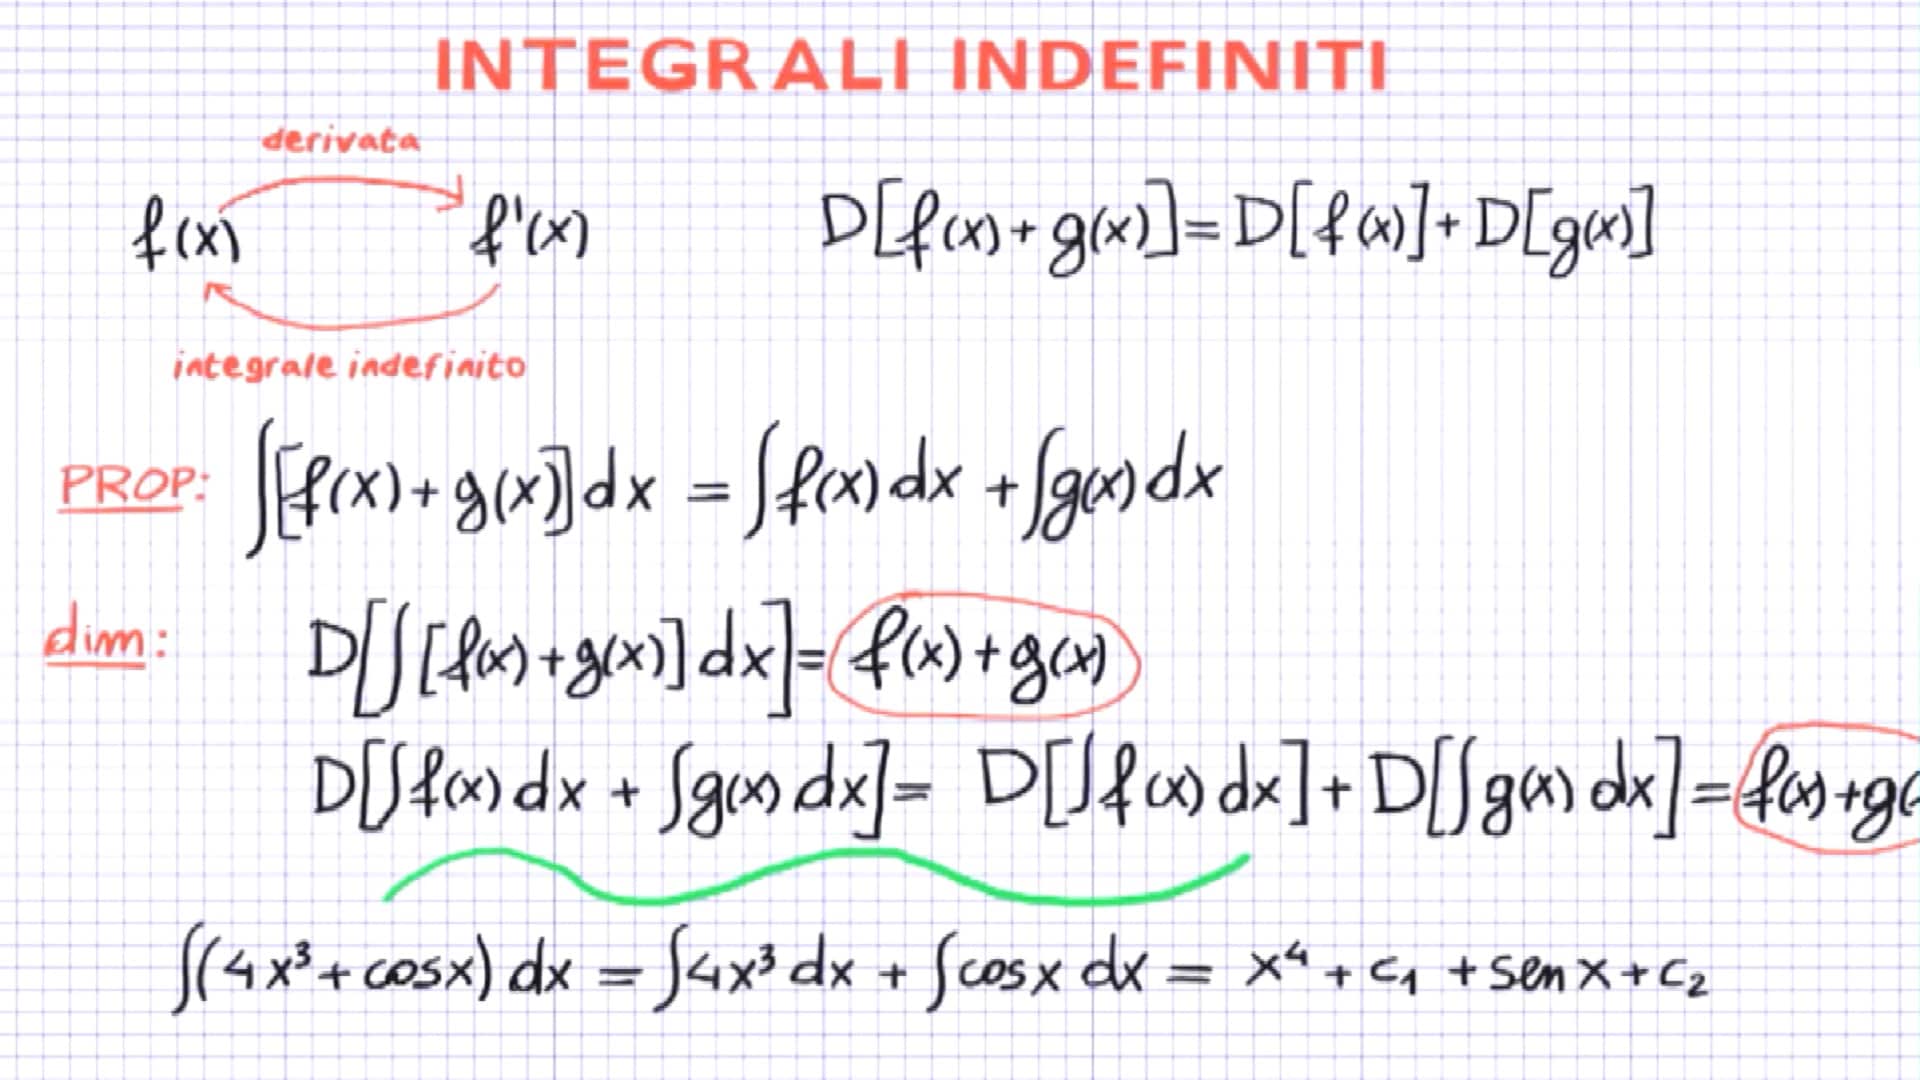 INTEGRALI INDEFINITI
derivata
f(x) f'(x) D[f(x)+g(x)]=D[f(x)]+D[g(x)]
integrale indefinito
PROP: ∫[f(x)+g(x)]dx = ∫f(x)dx + ∫g(x)dx
dim: D[∫[f(x)+g(x)]dx]= f(x)+g(x)
D[∫f(x)dx + ∫g(x)dx]= D[∫f(x)dx]+D[∫g(x)dx]=f(x)+g(
∫(4x³+cosx)dx = ∫4x³dx + ∫cosx dx = x⁴ + c₁ + sen x + c₂